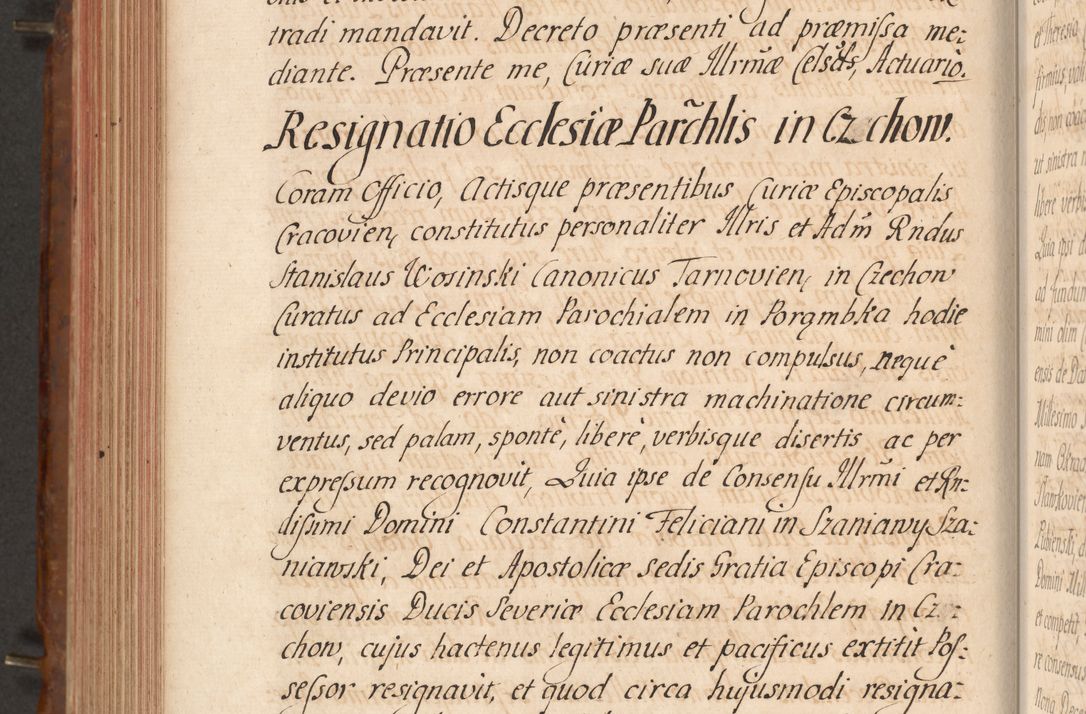 tradi mandavit. Decreto præsenti ad præmiſsa me:
diante. Præsente me, Curiæ suæ Illrmæ Celsdts, Actuario.
Resignatio Ecclesiæ Parchlis in Czchow.
Coram Officio, Actisque præsentibus Curiæ Episcopalis
Cracovien, constitutus personaliter Illris et Adm Rndus
Stanislaus Wosinski Canonicus Tarnovien, in Czechow
Curatus ad Ecclesiam Parochialem in Porąmbka hodie
institutus Principalis, non coactus non compulsus, nequè
aliquo devio errore aut sinistra machinatione circum:
ventus, sed palam, spontè, liberè, verbisque disertis ac per
expreſsum recognovit, Quia ipse de Consensu Illrmi et Rn:
diſsimi Domini Constantini Feliciani in Szaniawy Sza:
niawski, Dei et Apostolicæ Sedis Gratia Episcopi Cra:
coviensis Ducis Severiæ Ecclesiam Parochlem in Cz:
chow, cujus hactenus legitimus et pacificus extitit Poſ:
seſsor resignavit, et quod circa hujusmodi resigna: